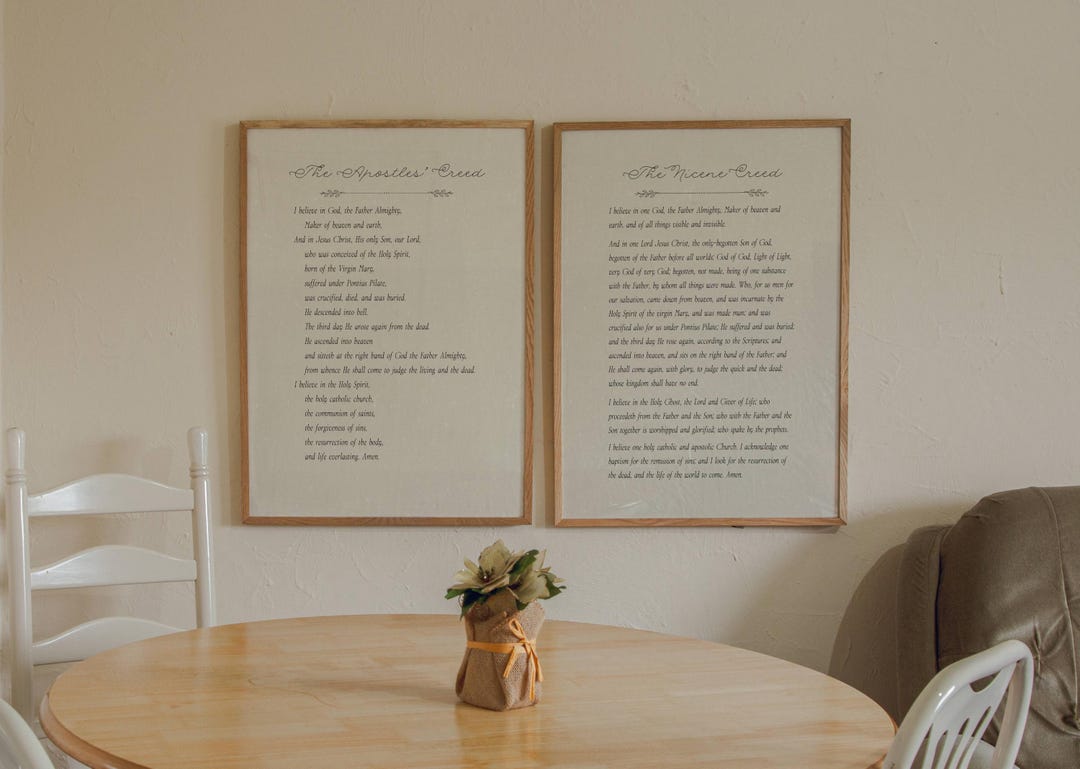 The Apostles' Creed
I believe in God, the Father Almighty,
Maker of heaven and earth,
And in Jesus Christ, His only Son, our Lord,
who was conceived of the Holy Spirit,
born of the Virgin Mary,
suffered under Pontius Pilate,
was crucified, died, and was buried.
He descended into hell.
The third day He arose again from the dead.
He ascended into heaven
and sitteth at the right hand of God the Father Almighty,
from whence He shall come to judge the living and the dead.
I believe in the Holy Spirit,
the holy catholic church,
the communion of saints,
the forgiveness of sins,
the resurrection of the body,
and life everlasting. Amen.
The Nicene Creed
I believe in one God, the Father Almighty, Maker of heaven and
earth, and of all things visible and invisible.
And in one Lord Jesus Christ, the only-begotten Son of God,
begotten of the Father before all worlds; God of God, Light of Light,
very God of very God; begotten, not made, being of one substance
with the Father, by whom all things were made. Who, for us men for
our salvation, came down from heaven, and was incarnate by the
Holy Spirit of the virgin Mary, and was made man; and was
crucified also for us under Pontius Pilate; He suffered and was buried;
and the third day He rose again, according to the Scriptures; and
ascended into heaven, and sits on the right hand of the Father; and
He shall come again, with glory, to judge the quick and the dead;
whose kingdom shall have no end.
I believe in the Holy Ghost, the Lord and Giver of Life; who
proceedeth from the Father and the Son; who with the Father and the
Son together is worshipped and glorified; who spake by the prophets.
I believe one holy catholic and apostolic Church. I acknowledge one
baptism for the remission of sins; and I look for the resurrection of
the dead, and the life of the world to come. Amen.